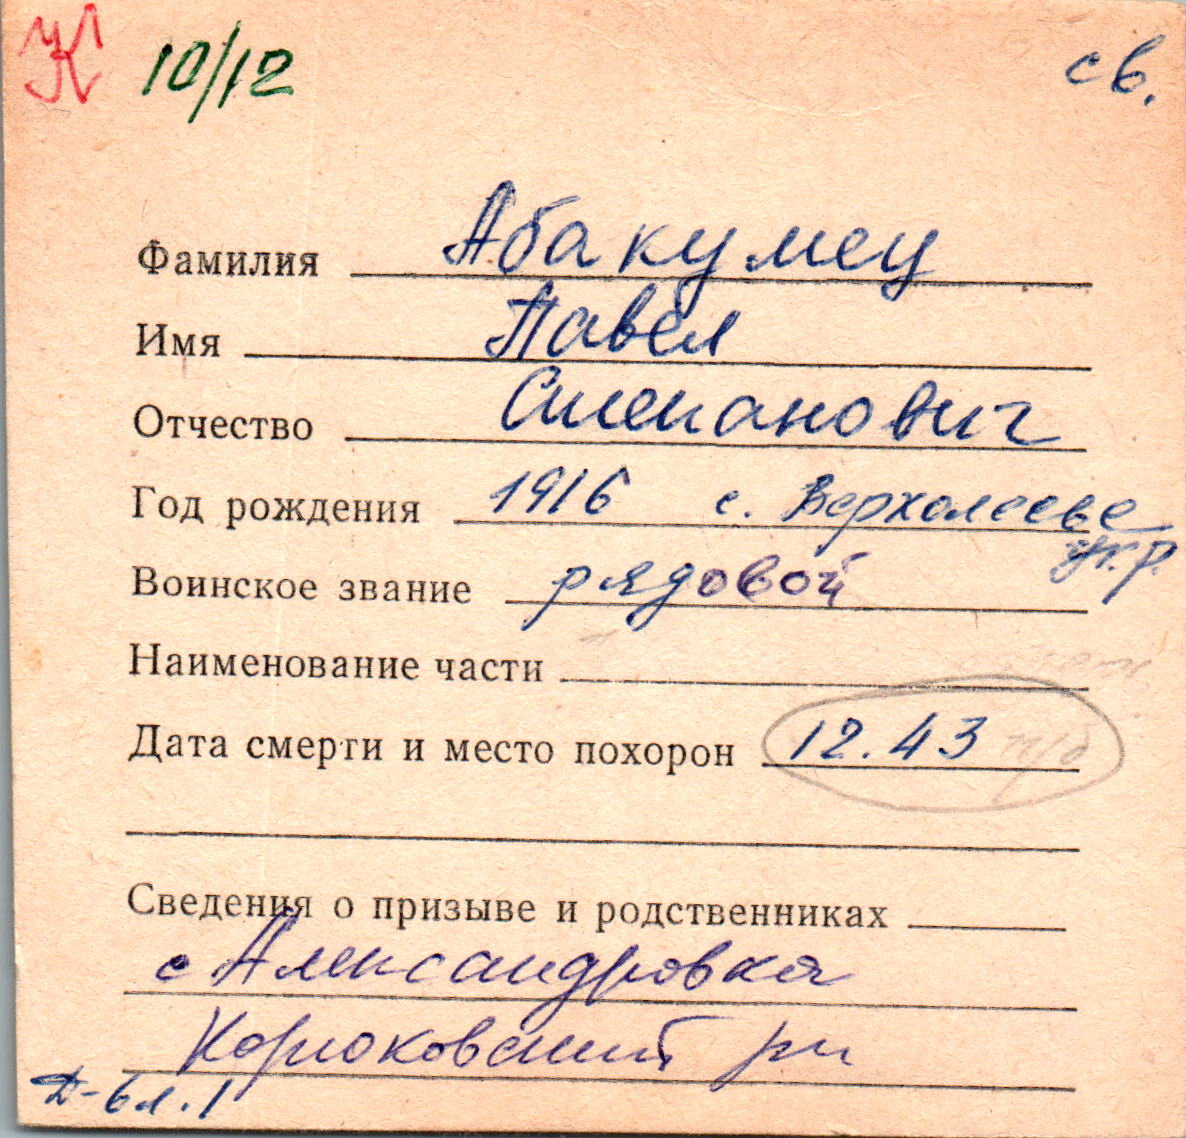 К 10/12 св.
Фамилия Абакумец
Имя Павел
Отчество Степанович
Год рождения 1916 с. Верхолесье
укр.
Воинское звание рядовой
Наименование части
Дата смерти и место похорон 12.43 п/б
Сведения о призыве и родственниках
с Александровка
Корюковский рн
Д-6 л.1